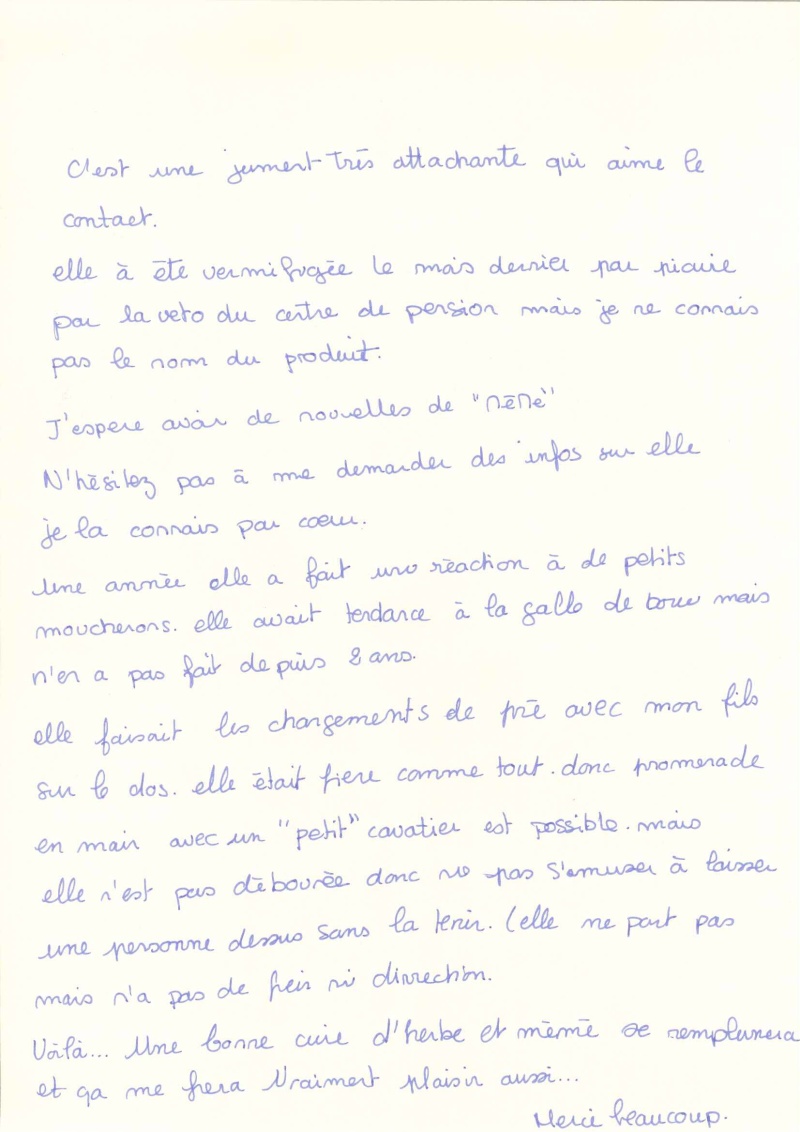 C'est une jument très attachante qui aime le
contact.
elle à été vermifugée le mois dernier par picure
par la veto du centre de pension mais je ne connais
pas le nom du produit.
J'espere avoir de nouvelles de "mémé"
N'hésitez pas à me demander des infos sur elle
je la connais par coeur.
Une année elle a fait une réaction à de petits
moucherons. elle avait tendance à la galle de boue mais
n'en a pas fait depuis 2 ans.
elle faisait les changements de pré avec mon fils
sur le dos. elle était fiere comme tout. donc promenade
en main avec un "petit" cavalier est possible. mais
elle n'est pas débourée donc ne pas s'amuser à laisser
une personne dessus sans la tenir. (elle ne part pas
mais n'a pas de frein ni dirrection.
Voilà... Une bonne cure d'herbe et mémé se remplumera
et ça me fera Vraiment plaisir aussi...
Merci beaucoup.